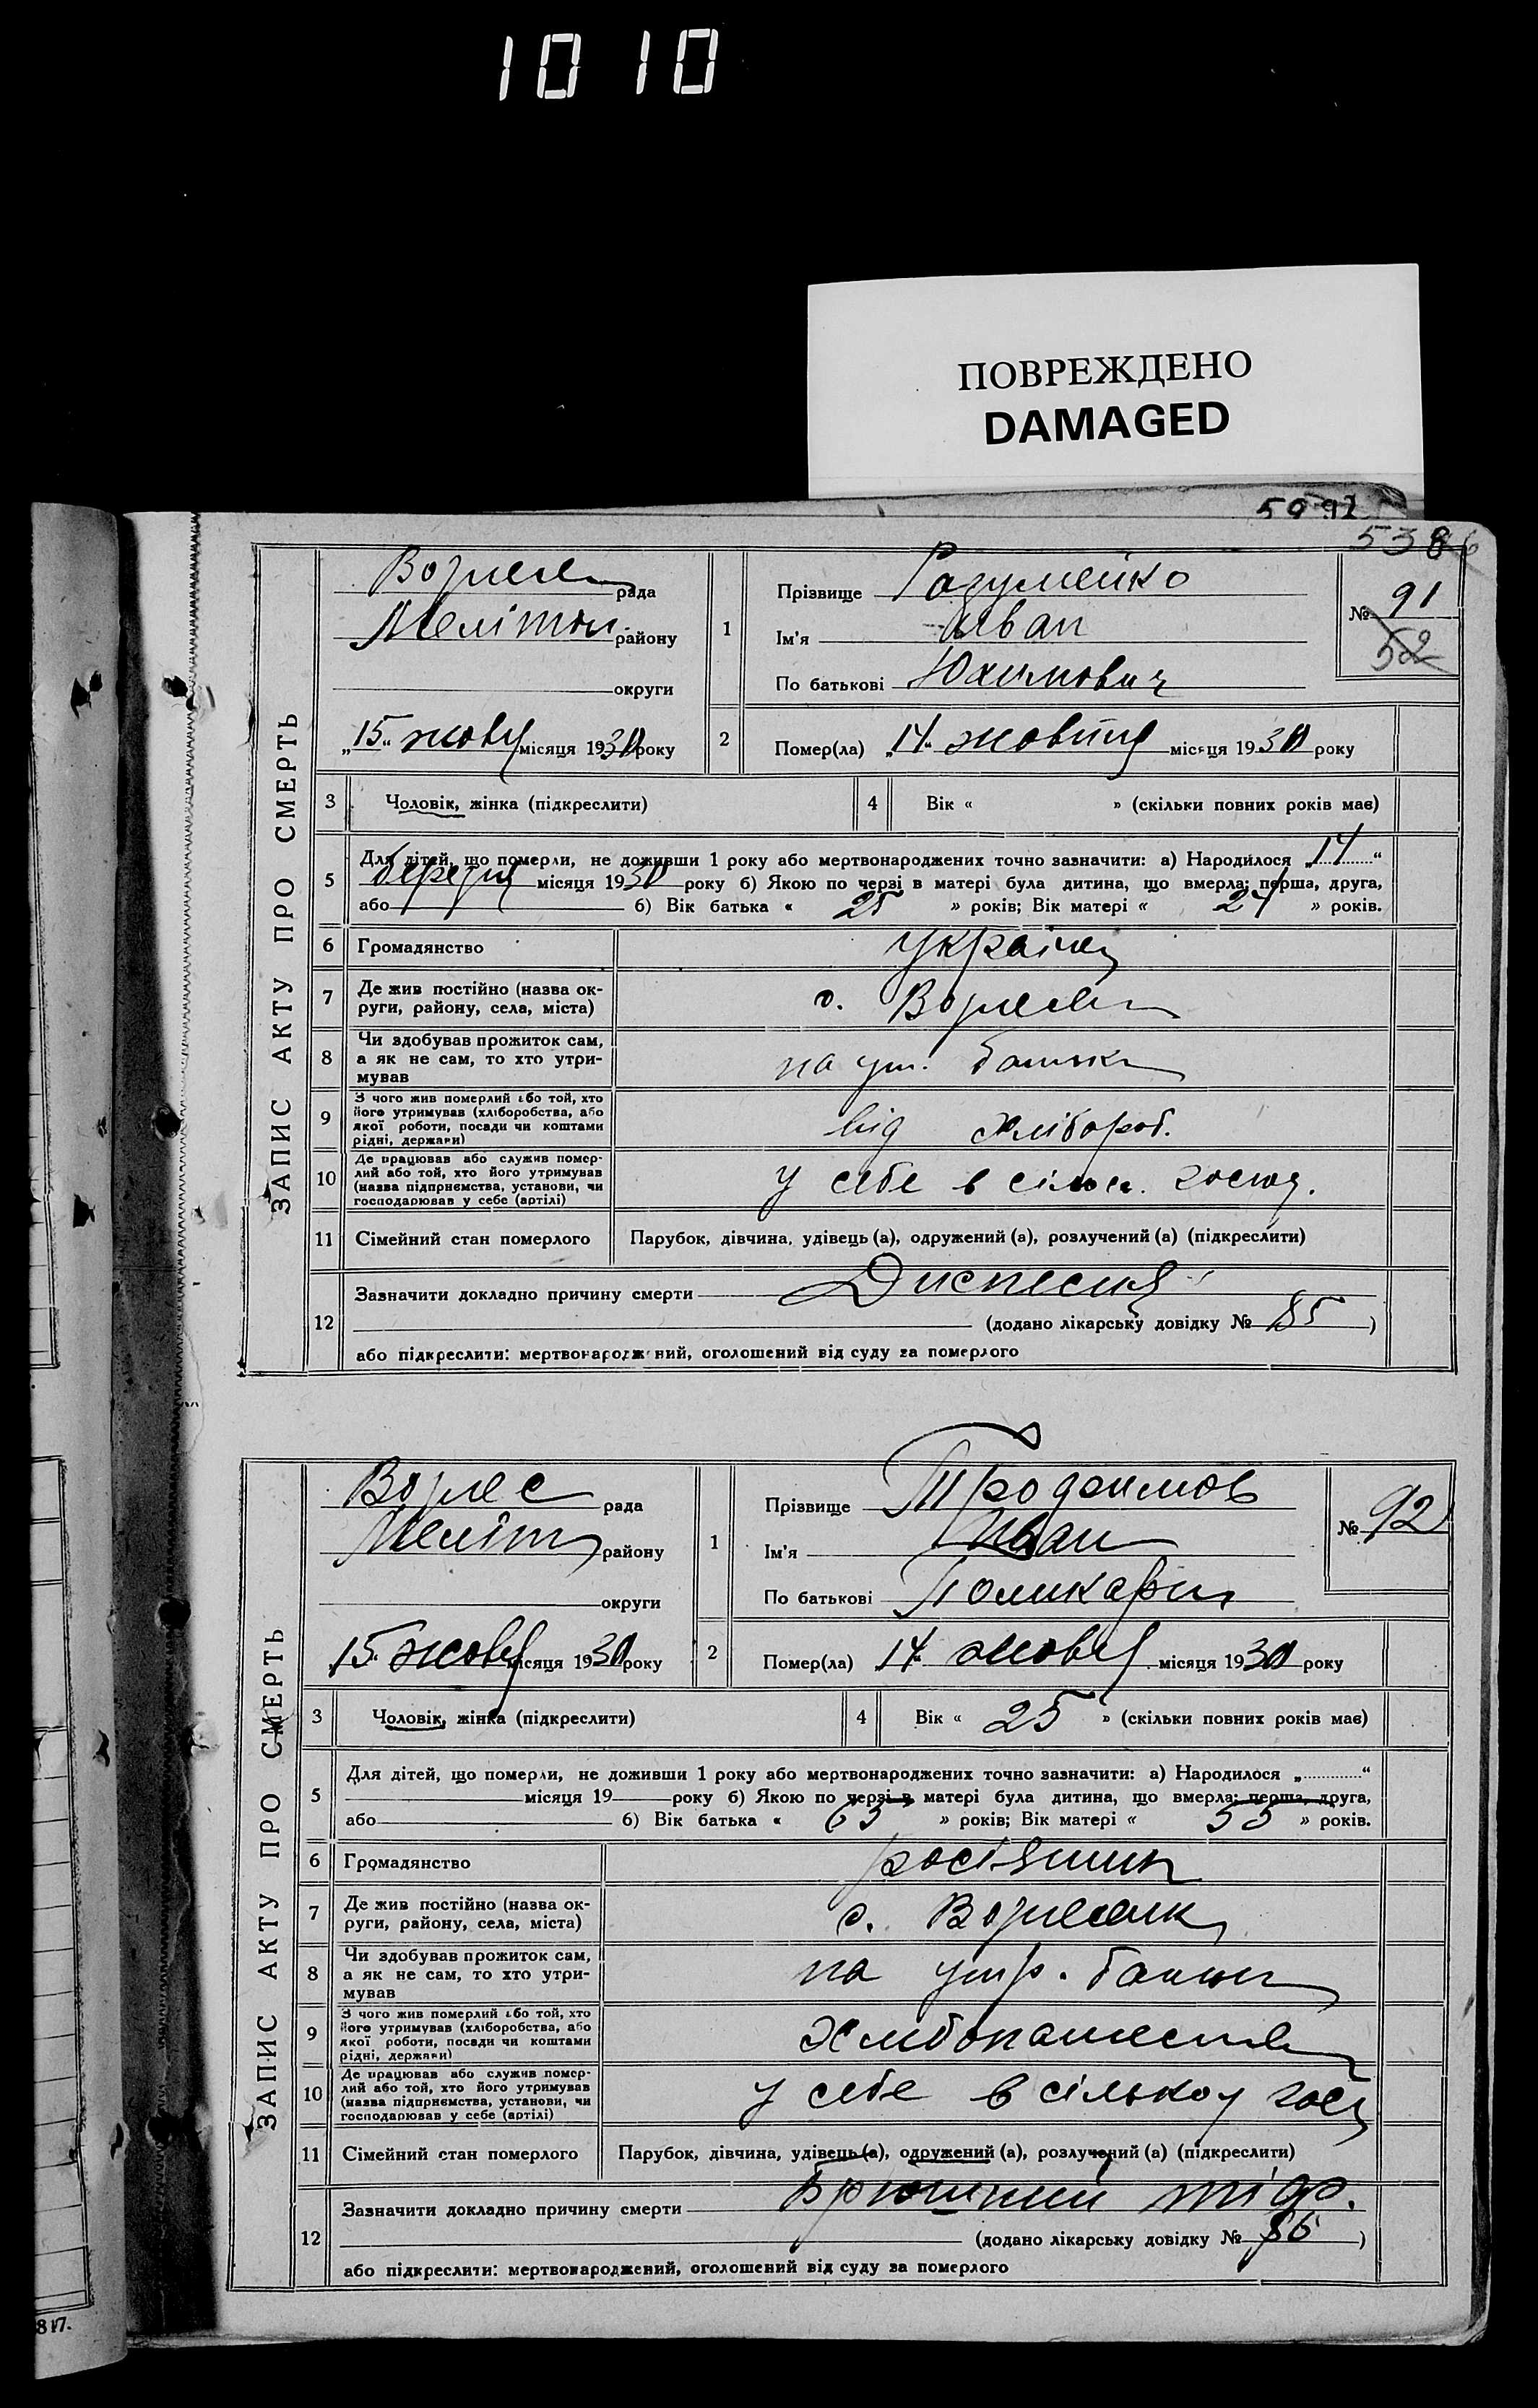 1010
ПОВРЕЖДЕНО
DAMAGED
5992
538
ЗАПИС АКТУ ПРО СМЕРТЬ
рада
Меліт району
округи
„15“ жовт місяця 1930 року
1
Прізвище
Ім'я Іван
По батькові Юхимович
№ 91
52
2
Помер(ла) „14“ жовтня місяця 1930 року
3 Чоловік, жінка (підкреслити)
4 Вік « » (скільки повних років мав)
5
Для дітей, що померли, не доживши 1 року або мертвонароджених точно зазначити: а) Народилося „14“
березня місяця 1930 року б) Якою по черзі в матері була дитина, що вмерла: перша, друга,
або б) Вік батька « 25 » років; Вік матері « 24 » років.
6 Громадянство україн
7 Де жив постійно (назва ок-
руги, району, села, міста)
с.
8 Чи здобував прожиток сам,
а як не сам, то хто утри-
мував
на ут. батька
9 З чого жив померлий або той, хто
його утримував (хліборобства, або
якої роботи, посади чи коштами
рідні, держави)
від хлібороб.
10 Де працював або служив помер-
лий або той, хто його утримував
(назва підприємства, установи, чи
господарював у себе (артілі)
у себе в сільск. госпд.
11 Сімейний стан померлого Парубок, дівчина, удівець (а), одружений (а), розлучений (а) (підкреслити)
12
Зазначити докладно причину смерти Диспесия
(додано лікарську довідку № 85 )
або підкреслити: мертвонароджений, оголошений від суду за померлого
ЗАПИС АКТУ ПРО СМЕРТЬ
рада
Меліт району
округи
15“ жовт місяця 1930 року
1
Прізвище Трофимов
Ім'я Иван
По батькові Поликарп
№ 92
2
Помер(ла) 14“ жовт місяця 1930 року
3 Чоловік, жінка (підкреслити)
4 Вік « 25 » (скільки повних років мав)
5
Для дітей, що померли, не доживши 1 року або мертвонароджених точно зазначити: а) Народилося „ “
місяця 19 року б) Якою по черзі в матері була дитина, що вмерла: перша, друга,
або б) Вік батька « 63 » років; Вік матері « 55 » років.
6 Громадянство росіянин
7 Де жив постійно (назва ок-
руги, району, села, міста)
с.
8 Чи здобував прожиток сам,
а як не сам, то хто утри-
мував
на утр. батька
9 З чого жив померлий або той, хто
його утримував (хліборобства, або
якої роботи, посади чи коштами
рідні, держави)
10 Де працював або служив помер-
лий або той, хто його утримував
(назва підприємства, установи, чи
господарював у себе (артілі)
у себе в сільком госп
11 Сімейний стан померлого Парубок, дівчина, удівець (а), одружений (а), розлучений (а) (підкреслити)
12
Зазначити докладно причину смерти Брюшний тіф.
(додано лікарську довідку № 86 )
або підкреслити: мертвонароджений, оголошений від суду за померлого
817.